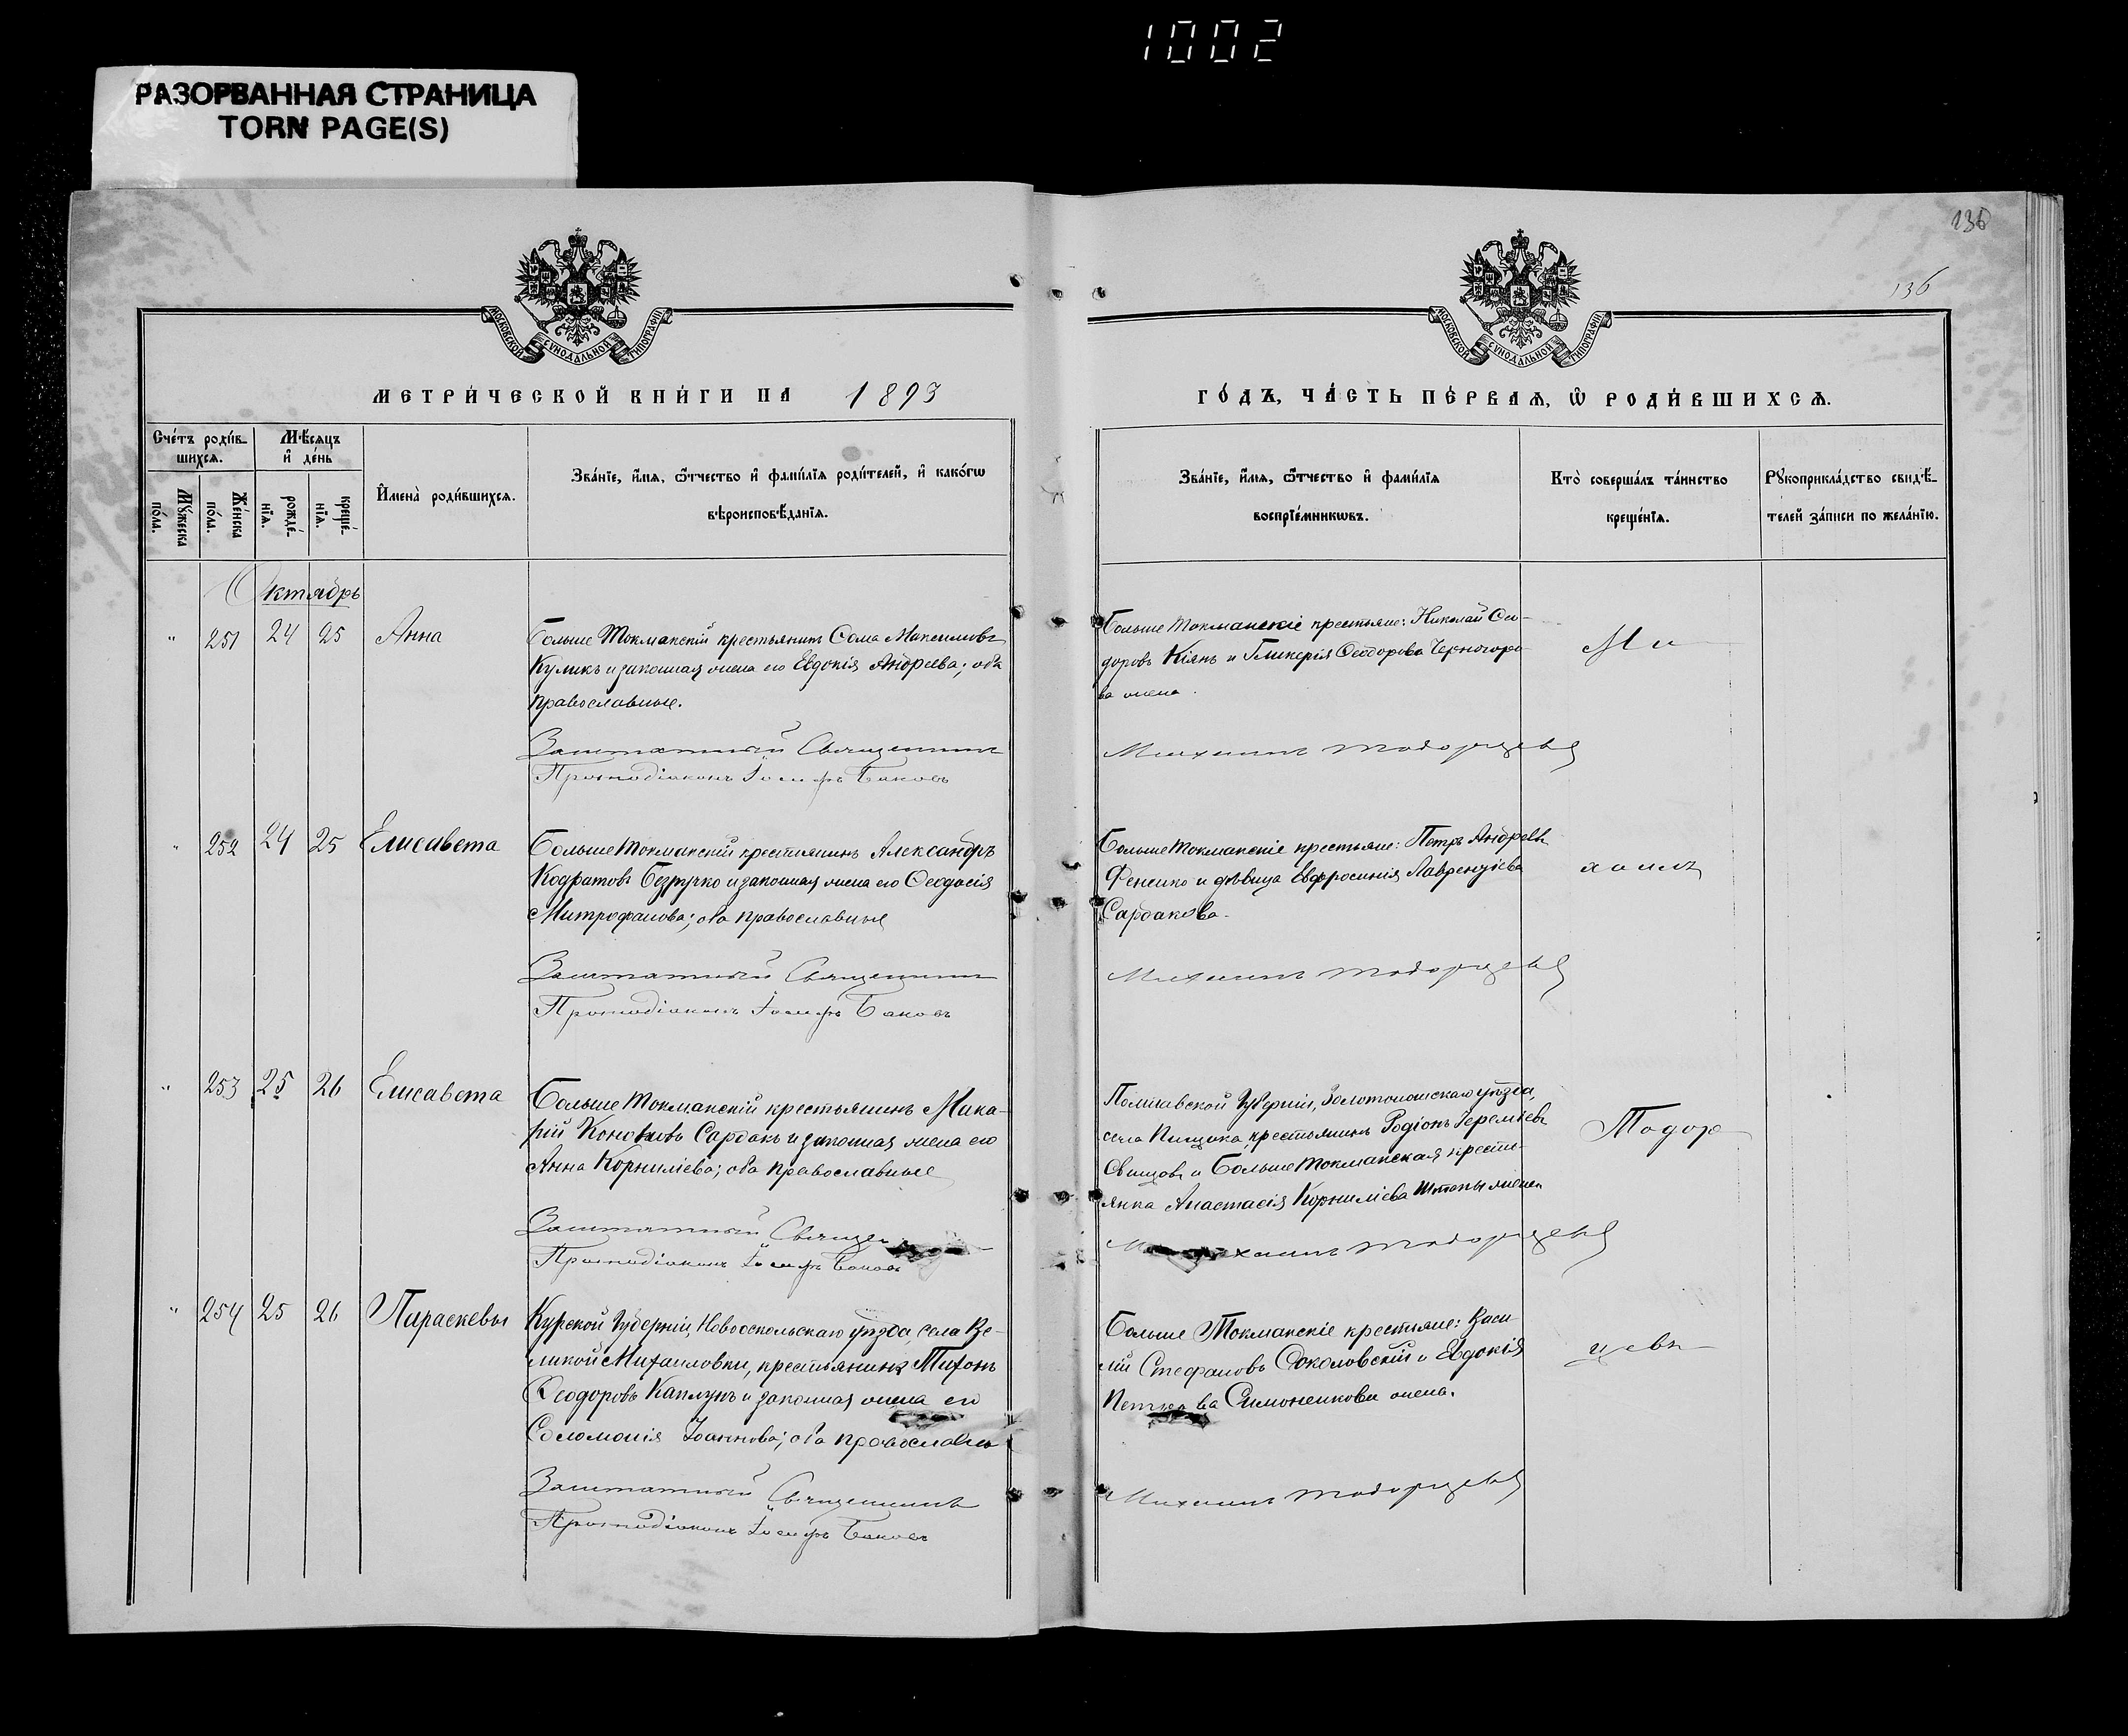 1002
РАЗОРВАННАЯ СТРАНИЦА
TORN PAGE(S)
136
136
МОСКОВСКОЙ СѴНОДАЛЬНОЙ ТИПОГРАФІИ
МОСКОВСКОЙ СѴНОДАЛЬНОЙ ТИПОГРАФІИ
МЕТРИ́ЧЕСКОЙ КНИ́ГИ НА 1893
ГО́ДЪ, ЧА́СТЬ ПЕ́РВАѦ, Ѡ҆ РОДИ́ВШИХСѦ.
Сче́тъ роди́в-
шихсѧ.
Мѣ́сѧцъ
и҆ де́нь
Мꙋ́жеска по́ла.
Же́нска по́ла.
рожде́-
нїѧ.
креще́-
нїѧ.
И҆мена̀ роди́вшихсѧ.
Зва́нїе, и҆́мѧ, ѻ҆́тчество и҆ фами́лїѧ роди́телей, и҆ како́гѡ
вѣроисповѣ́данїѧ.
Зва́нїе, и҆́мѧ, ѻ҆́тчество и҆ фами́лїѧ
воспрїе́мникѡвъ.
Кто̀ соверша́лъ та́инство
креще́нїѧ.
Рꙋкоприкла́дство свидѣ́-
телей за́писи по жела́нїю.
Октябрь
" 251 24 25 Анна
Больше Токмакскій крестьянинъ Сома Максимовъ
Куликъ и законная жена его Евдокія Андреева; оба
православные.
Заштатный Священникъ
Протодіаконъ Іосифъ Баковъ
Больше Токмакскіе крестьяне: Николай Ѳео-
доровъ Кіянъ и Гликерія Ѳеодорова Черногоро-
ва жена.
Ми
Михаилъ Тодорцевъ
" 252 24 25 Елисавета
Больше Токмакскій крестьянинъ Александръ
Кодратовъ Безручко и законная жена его Ѳеодосія
Митрофанова; оба православные
Заштатный Священникъ
Протодіаконъ Іосифъ Баковъ
Больше Токмакскіе крестьяне: Петръ Андреевъ
Фененко и дѣвица Евфросинія Лаврентіева
Сардакова.
хаилъ
Михаилъ Тодорцевъ
" 253 25 26 Елисавета
Больше Токмакскій крестьянинъ Мака-
рій Кононовъ Сардакъ и законная жена его
Анна Корниліева; оба православные
Заштатный Священ
Протодіаконъ Іосифъ Баковъ
Полтавской Губерніи, Золотоношскаго уѣзда,
села Пищика, крестьянинъ Родіонъ Іереміевъ
Свищовъ и Больше Токмакская кресть-
янка Анастасія Корниліева жена
Тодор
Михаилъ Тодорцевъ
" 254 25 26 Параскевы
Курской Губерніи, Новооскольскаго уѣзда, села Ве-
ликой Михаиловки, крестьянинъ Тихонъ
Ѳеодоровъ Каплунъ и законная жена его
Соломонія Іоаннова; оба православны
Заштатный Священникъ
Протодіаконъ Іосифъ Баковъ
Больше Токмакскіе крестьяне: Васи-
лій Стефановъ Соколовскій и Евдокія
Петрова Симоненкова жена.
цевъ
Михаилъ Тодорцевъ